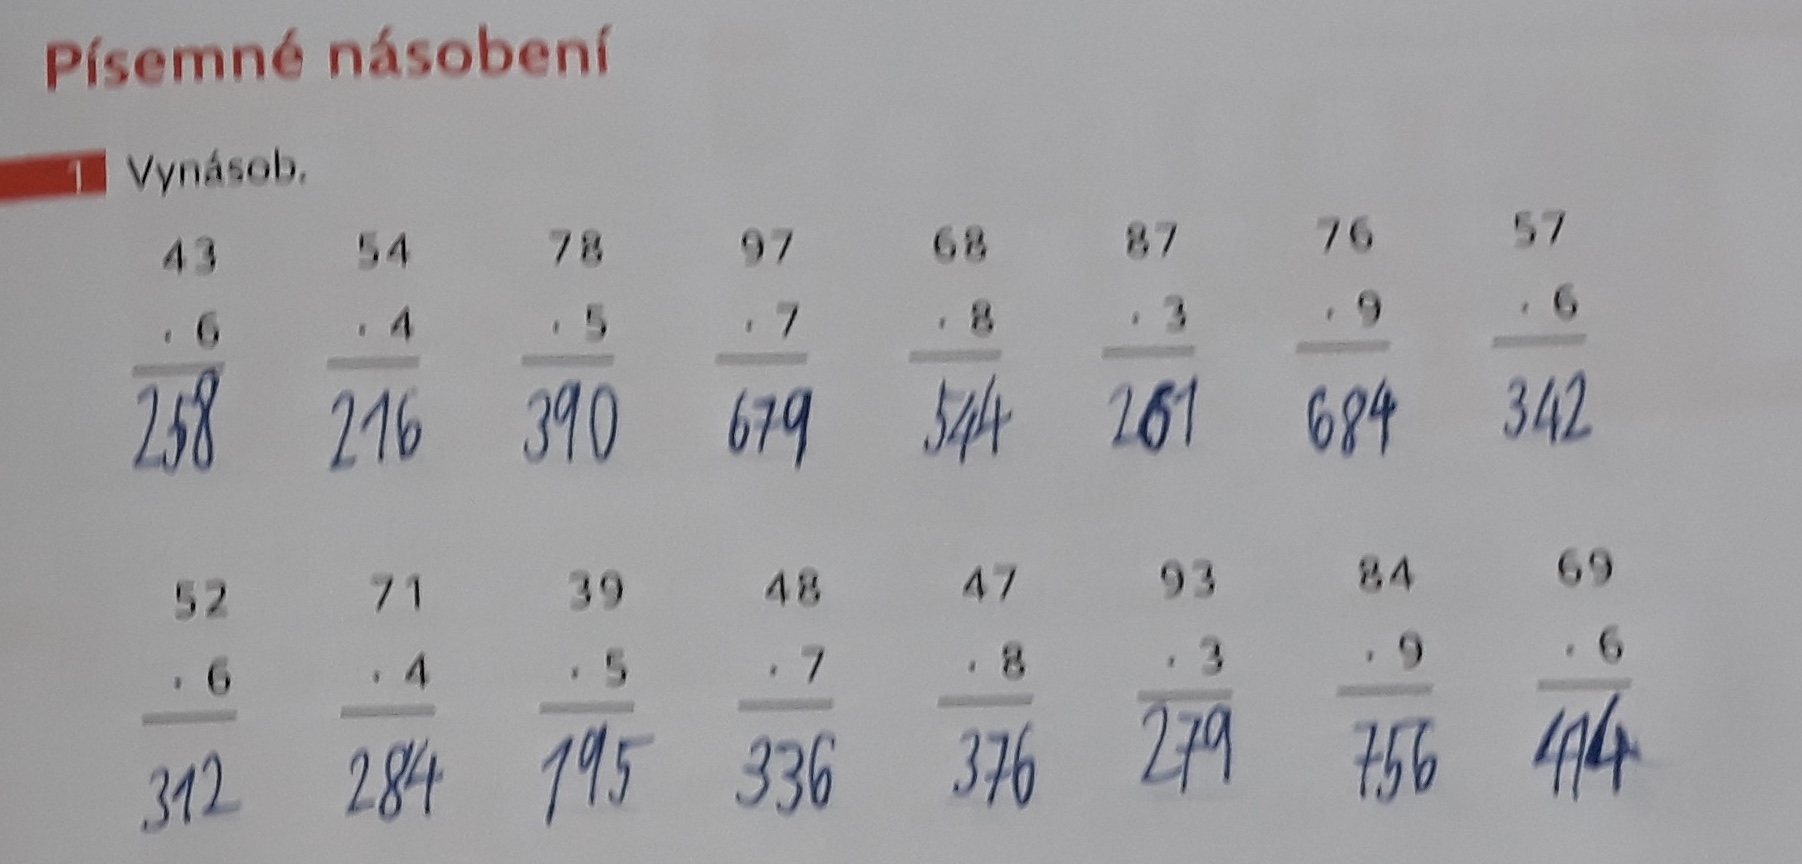 Písemné násobení
1 Vynásob.
43 54 78 97 68 87 76 57
. 6 . 4 . 5 . 7 . 8 . 3 . 9 . 6
258 216 390 679 544 261 684 342
52 71 39 48 47 93 84 69
. 6 . 4 . 5 . 7 . 8 . 3 . 9 . 6
312 284 195 336 376 279 756 414